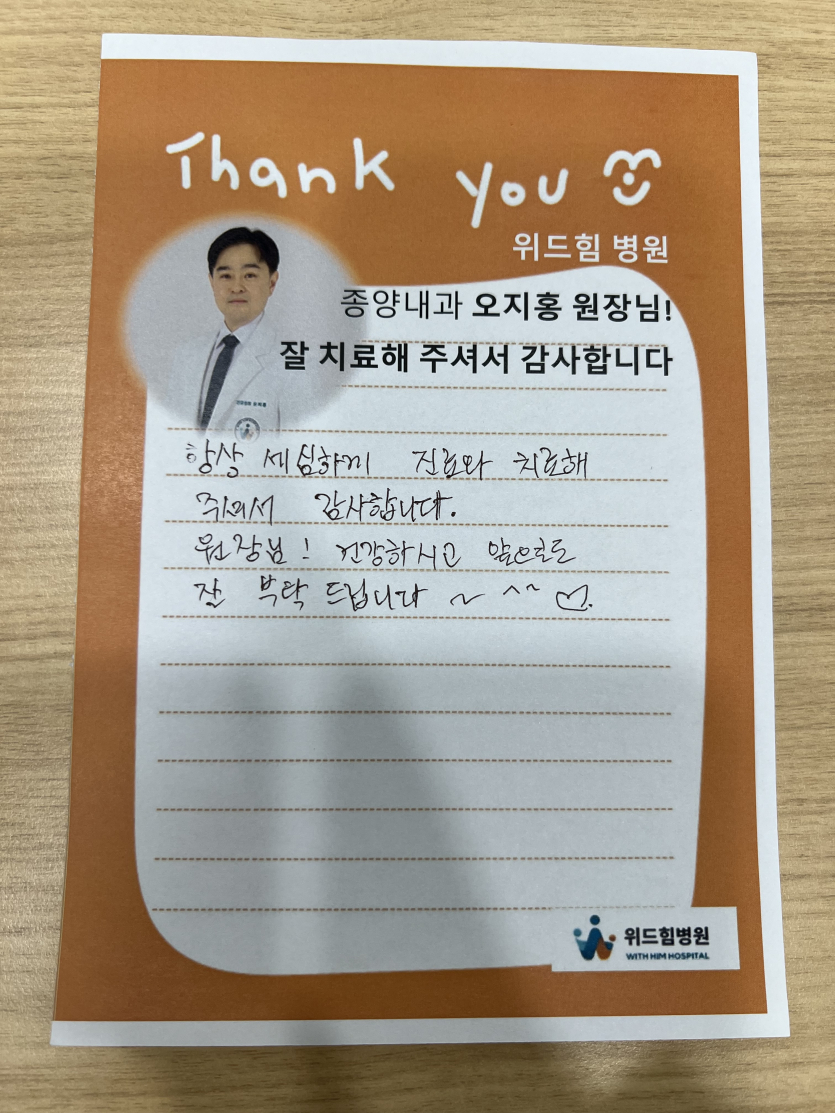 Thank you
위드힘 병원
종양내과 오지홍 원장님!
잘 치료해 주셔서 감사합니다
항상 세심하게 진료와 치료해
주셔서 감사합니다.
원장님! 건강하시고 앞으로도
잘 부탁 드립니다 ~ ^^
위드힘병원
WITH HIM HOSPITAL